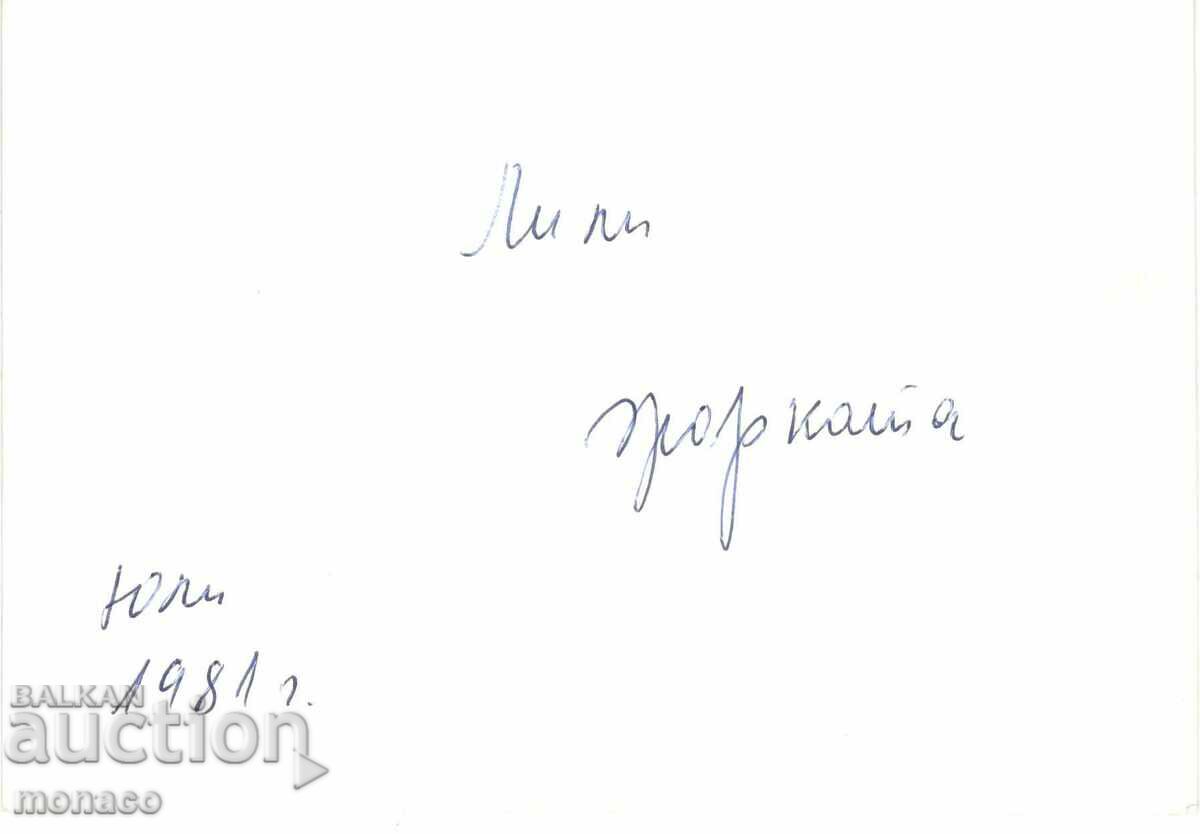 Лили
Жорката
Юли
1981 г.
BALKAN
auction
monaco